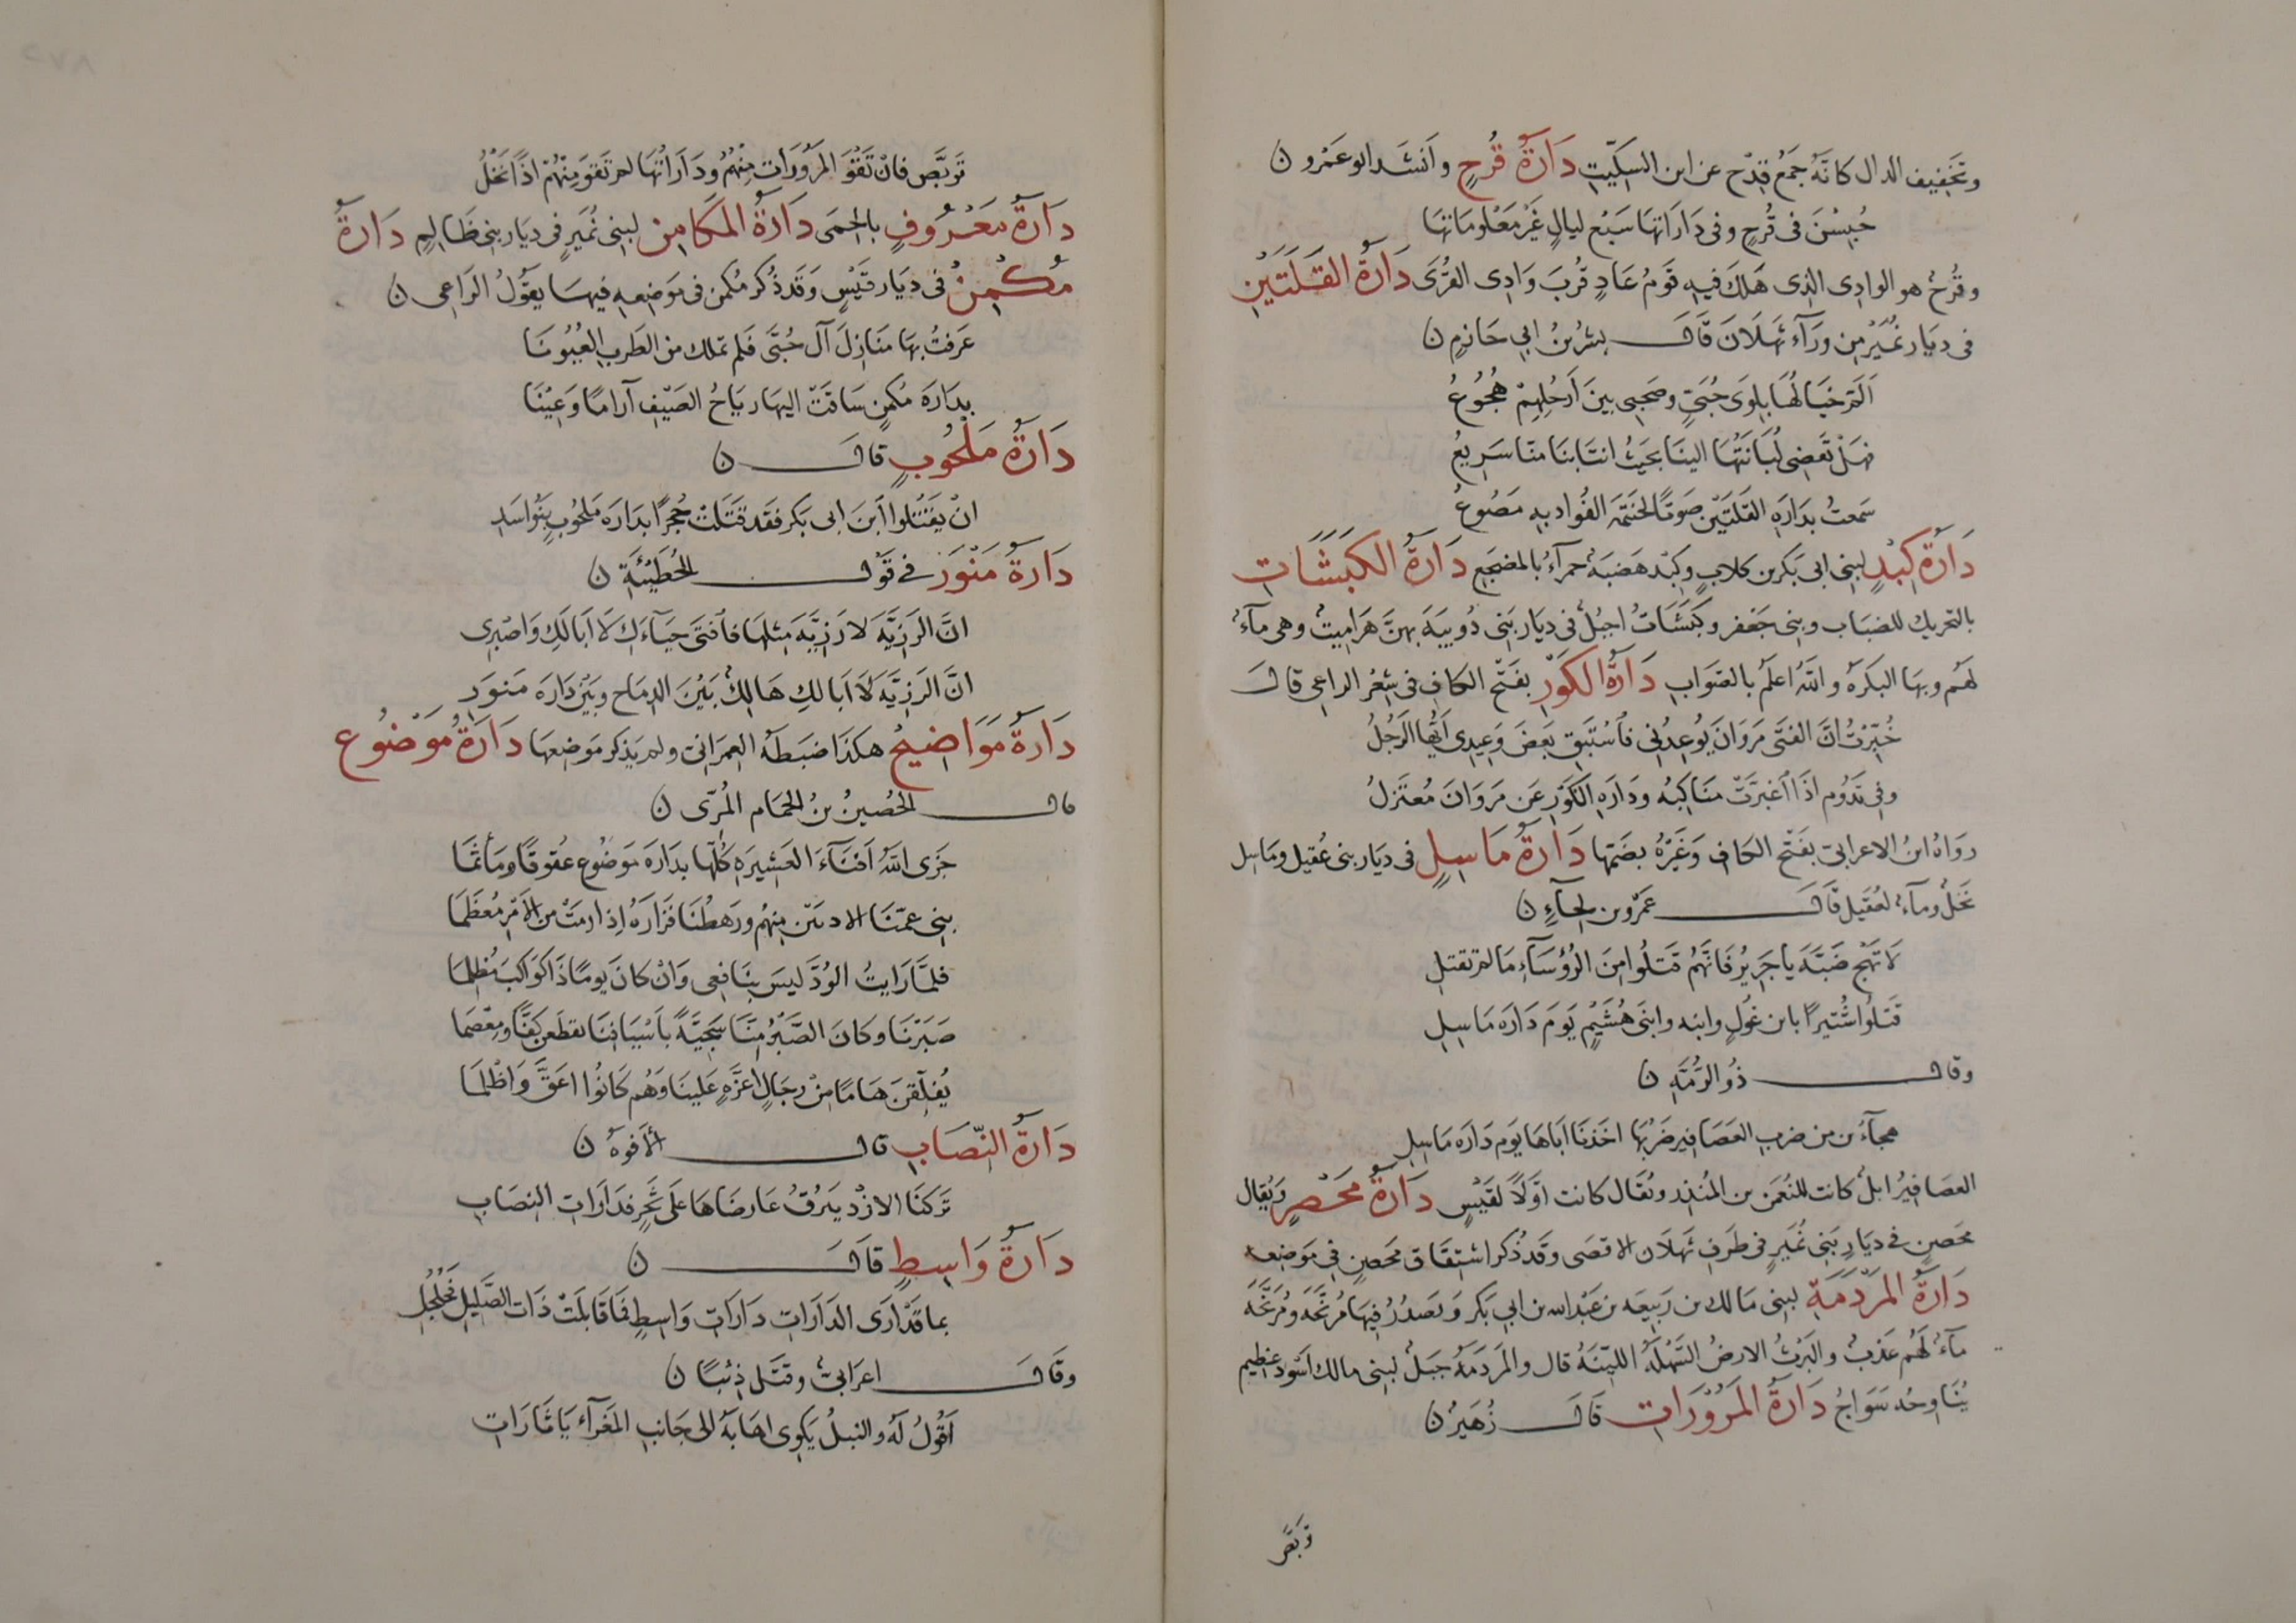 وتخفيف الدال كانّه جمع قِدْح عن ابن السكّيت دَارَةُ قُرحٍ وانشد ابو عمرو ن
حُبِسْنَ فى قُرحٍ وفى دَارَاتِهَا سَبْعَ ليالٍ غَيْرَ مَعْلومَاتهَا
وقُرحُ هو الوادِى الذِى هَلَكَ فيهِ قَومُ عَادٍ قُربَ وَادِى القُرَى دَارَةُ القَلَتَيْنِ
فى ديَار نُمَيْرٍ من ورَآءِ ثَهْلَانَ قَالَ بِشْرُ بنُ ابي حَازمٍ ن
اَلَمّ خيَالُهَا بلِوَى حُبَىٍّ وصَحبى بينَ اَرحُلِهِمْ هُجُوعُ
فهَلْ تَقضِى لُبَانَتَهَا الينَا بحَيثُ انتَابَنَا منّا سَرِيعُ
سَمعتُ بدَارَةِ القَلَتَيْن صَوتًا لحَنتمَة الفُوادُ بهِ مَصُوعُ
دَارَةُ كِبْدٍ لبنِى ابى بَكر بن كلابٍ وكبْد هَضبَةٌ حمرآءُ بالمضجَعِ دَارَةُ الكَبَشَاتِ
بالتحريك للضبَاب وبنى جَعْفر وكَبَشَاتُ اجبُلٌ فى ديَار بَنى ذُوَيبَةَ بهنَّ هَرَامِيتُ وهى مآءٌ
لَهُم وبهَا البَكرَة واللهُ اعلَم بالصَوابِ دَارَةُ الكَوْرِ بفَتْح الكاف فى شِعْر الراعى قَالَ
خُبّرْتُ انّ الفتَى مَروَانَ يُوعِدُنِى فَاستَبقِ بَعضَ وَعِيدِى اَيُّهَا الرَجُلُ
وفِى تَدُوم اذَا اغبَرَّتْ مَنَاكِبُه ودَارَةِ الكَوْرِ عَن مَروَانَ مُعتَزلُ
رواهُ ابنُ الاعرابىّ بفَتْح الكاف وَغَيْرُهُ بضَمّهَا دَارَةُ مَاسِلٍ فى ديَار بنى عُقَيل ومَاسِل
نَخلٌ ومآءٌ لعُقَيل قَالَ عَمرو بن لجآءٍ ن
لَا تَهْجُ ضَبَّةَ يا جَرِيرُ فَانّهُم قَتَلُوا مِنَ الرُؤسَآءِ مَا لم تَقتلِ
قَتَلُوا شُتَيرًا بابن غُولٍ وابنه وابنَى هُشَيْمٍ يَومَ دَارَة مَاسِلِ
وقال ذُو الرُمَّةِ ن
هجآءُ من ضربِ العَصَافيرِ ضَرْبُهَا اخَذنَا اَبَاهَا يَوم دَارَة مَاسِلِ
العصَافِيرُ ابلٌ كانت للنُعمَن بن المُنذِر ويُقَال كانت اوّلًا لقَيْسٍ دَارَةُ مَحْصرٍ وَيُقال
محَصنٍ فى ديَارِ بَنِى نُمَيرٍ فى طَرفِ ثَهلَان الاقصَى وقَد ذُكر اشتِقَاق مَحصنٍ فِى مَوضِعه
دَارَةُ المَرْدَمَةِ لبنِى مَالك بن رَبِيعَة بن عَبْد الله بن ابي بَكر
مآءٌ لَهُم عَذبٌ والبَرثُ الارضُ السَهْلَةُ اللينَةُ قال والمَردَمَةُ جَبَلٌ لبنى مالك اَسْود عَظيم
يُنَاوحُه سَوَاجُ دَارَةُ المَرَوْرَاتِ قَالَ زُهَيرٌ ن
تربّص
تَربَّص فانْ تَقْوَ المَرَوْرَات مِنْهُمُ ودَارَاتُهَا لم تَقوَ مِنْهُمْ اذًا نَخْلُ
دَارَةُ مَعْرُوفٍ بالحِمَى دَارَةُ المَكَامِن لبنى نُمَيرٍ فى ديَار بنى ظَالِمٍ دَارَةُ
مُكْمِنٍ فى ديَار قَيْسٍ وقَد ذُكر مُكمن فى مَوضِعه فيهَا يقُولُ الرَاعى ن
عَرفتُ بهَا مَنَازِلَ آلِ حُبَّى فَلم تملك من الطَرب العُيُونَا
بدَارَة مُكمِنٍ سَاقَتْ اليهَا ريَاحُ الصَيْفِ آرامًا وعِيْنَا
دَارَةُ مَلْحُوبٍ قال ن
انْ يَقْتُلُوا ابْنَ ابى بَكرٍ فقَد قَتَلَتْ حُجْرًا بدَارَة مَلحُوبٍ بَنُو اسَدِ
دَارَةُ مَنْوَرَ فى قَول الحُطَيْئَةِ ن
انّ الرَزِيَّة لا رَزِيَّةَ مثلهَا فاقنَى حَيَآءَكِ لَا اَبَا لَكِ وَاصْبِرِى
انّ الرَزِيَّةَ لَا اَبَا لكِ هَالِكٌ بَيْنَ الدِمَاخ وبَيْنَ دَارَة مَنوَرِ
دَارَةُ مَوَاضيعُ هكذَا ضبَطَهُ العِمرَانىّ ولم يَذكر مَوضِعهَا دَارَةُ مَوْضُوع
قال الحُصيْنُ بنُ الحُمَام المُرّى ن
جَزَى اللهُ اَفْنَآءَ العَشِيرَةِ كُلّهَا بدَارَة مَوضُوع عُقوقًا ومَأثمَا
بنِى عمّنَا الادنَيْن منهُم ورَهطُنَا فَزَارَةُ اذ ارمَتْ من الاَمْر مُعظَمَا
فلمّا رَايتُ الوُدّ لَيسَ بنَافِعى وَانْ كانَ يومًا ذَا كوَاكبَ مُظلمَا
صَبَرْنَا وكانَ الصَّبْرُ مِنَّا سَجيَّةً باَسْيَافنَا يقطعن كَفًّا ومِعْصَمَا
يُفلّقنَ هَامًا مِنْ رجَالٍ اعزَّةٍ عَلينَا وَهُم كَانُوا اعَقَّ وَاَظْلَمَا
دَارَةُ النّصَابِ قال الاَفوَهُ ن
تَركنَا الازْد يَبرُقُ عَارضَاهَا عَلَى ثَجْرٍ فدَارَاتِ النصَابِ
دَارَةُ وَاسِطٍ قَالَ ن
بما قَدْ اَرَى الدَارَاتِ دَارَاتِ وَاسِطٍ فمَا قَابلَتْ ذَات الصَّلِيلِ فَجُلْجُلُ
وقَالَ اعرَابىّ وقتَل ذِئبًا ن
اَقُولُ لَهُ والنبلُ يَكوِى اهَابَهُ الى جَانب المَعْزآءِ يَا ثَارَاتِ